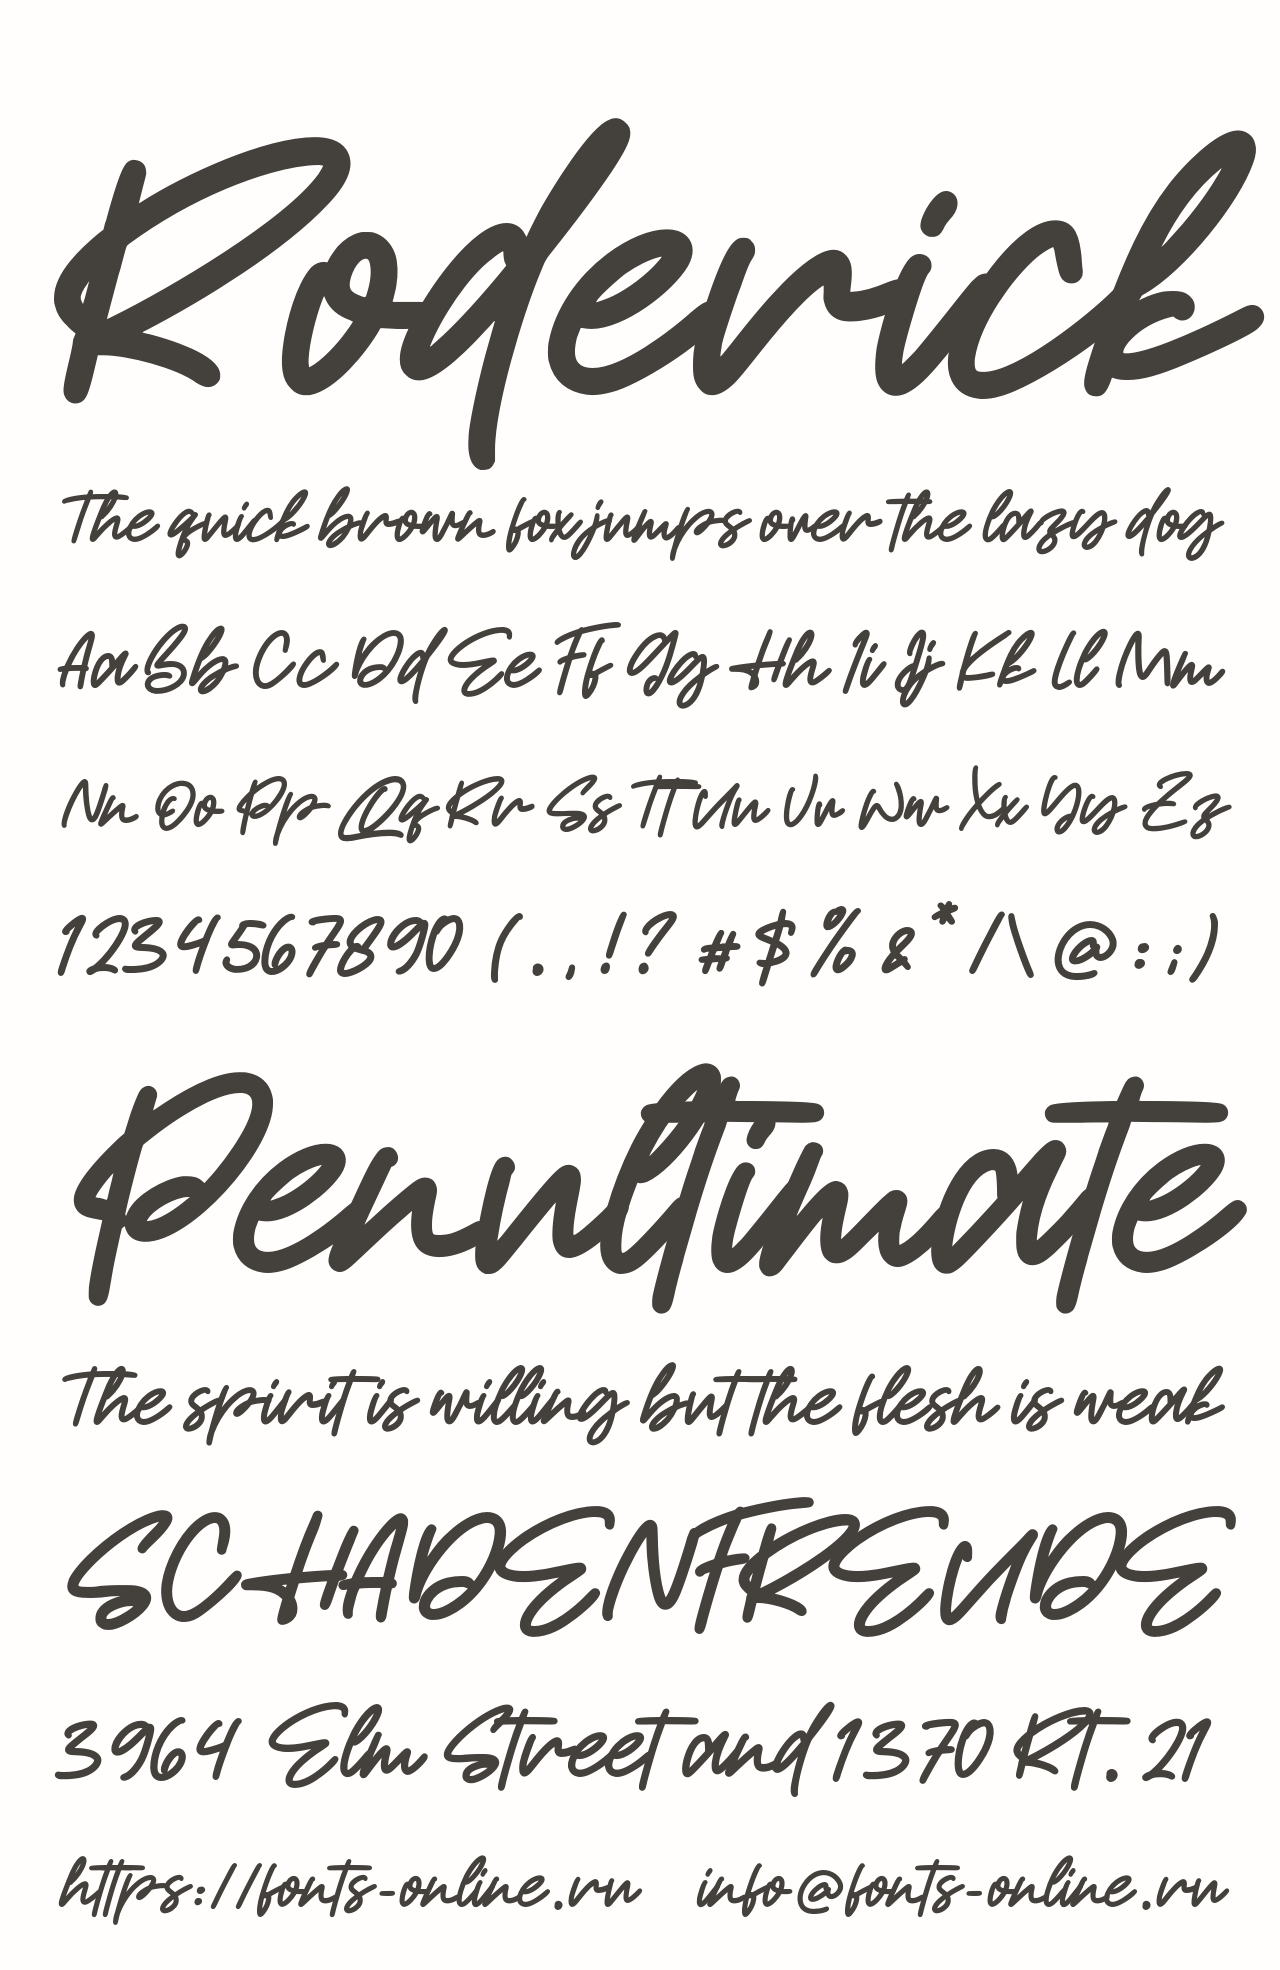 Roderick
The quick brown fox jumps over the lazy dog
Aa Bb Cc Dd Ee Ff Gg Hh Ii Jj Kk Ll Mm
Nn Oo Pp Qq Rr Ss Tt Uu Vv Ww Xx Yy Zz
1234567890 (.,!? #$%&*/\@:;)
Penultimate
The spirit is willing but the flesh is weak
SCHADENFREUDE
3964 Elm Street and 1370 RT. 21
https://fonts-online.ru info@fonts-online.ru